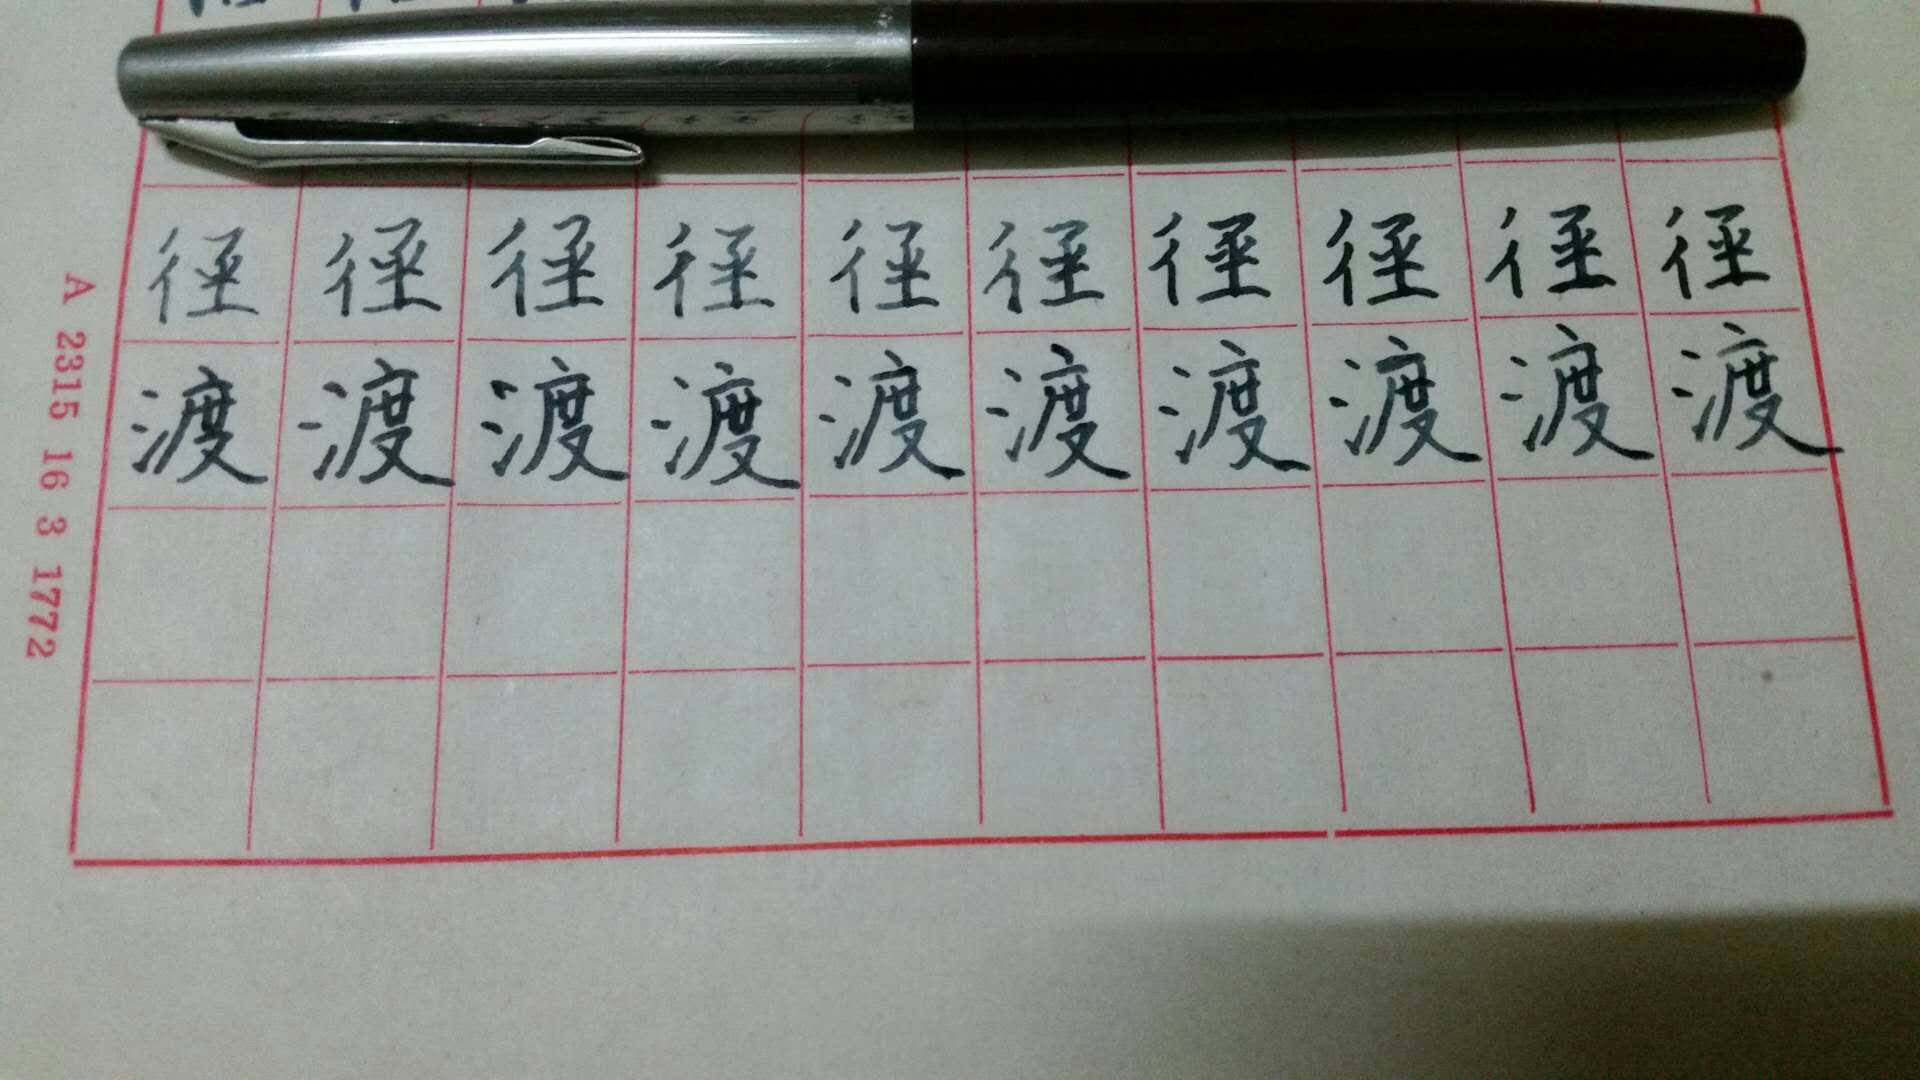 径径径径径径径径径径
渡渡渡渡渡渡渡渡渡渡
A 2315 16 3 1772